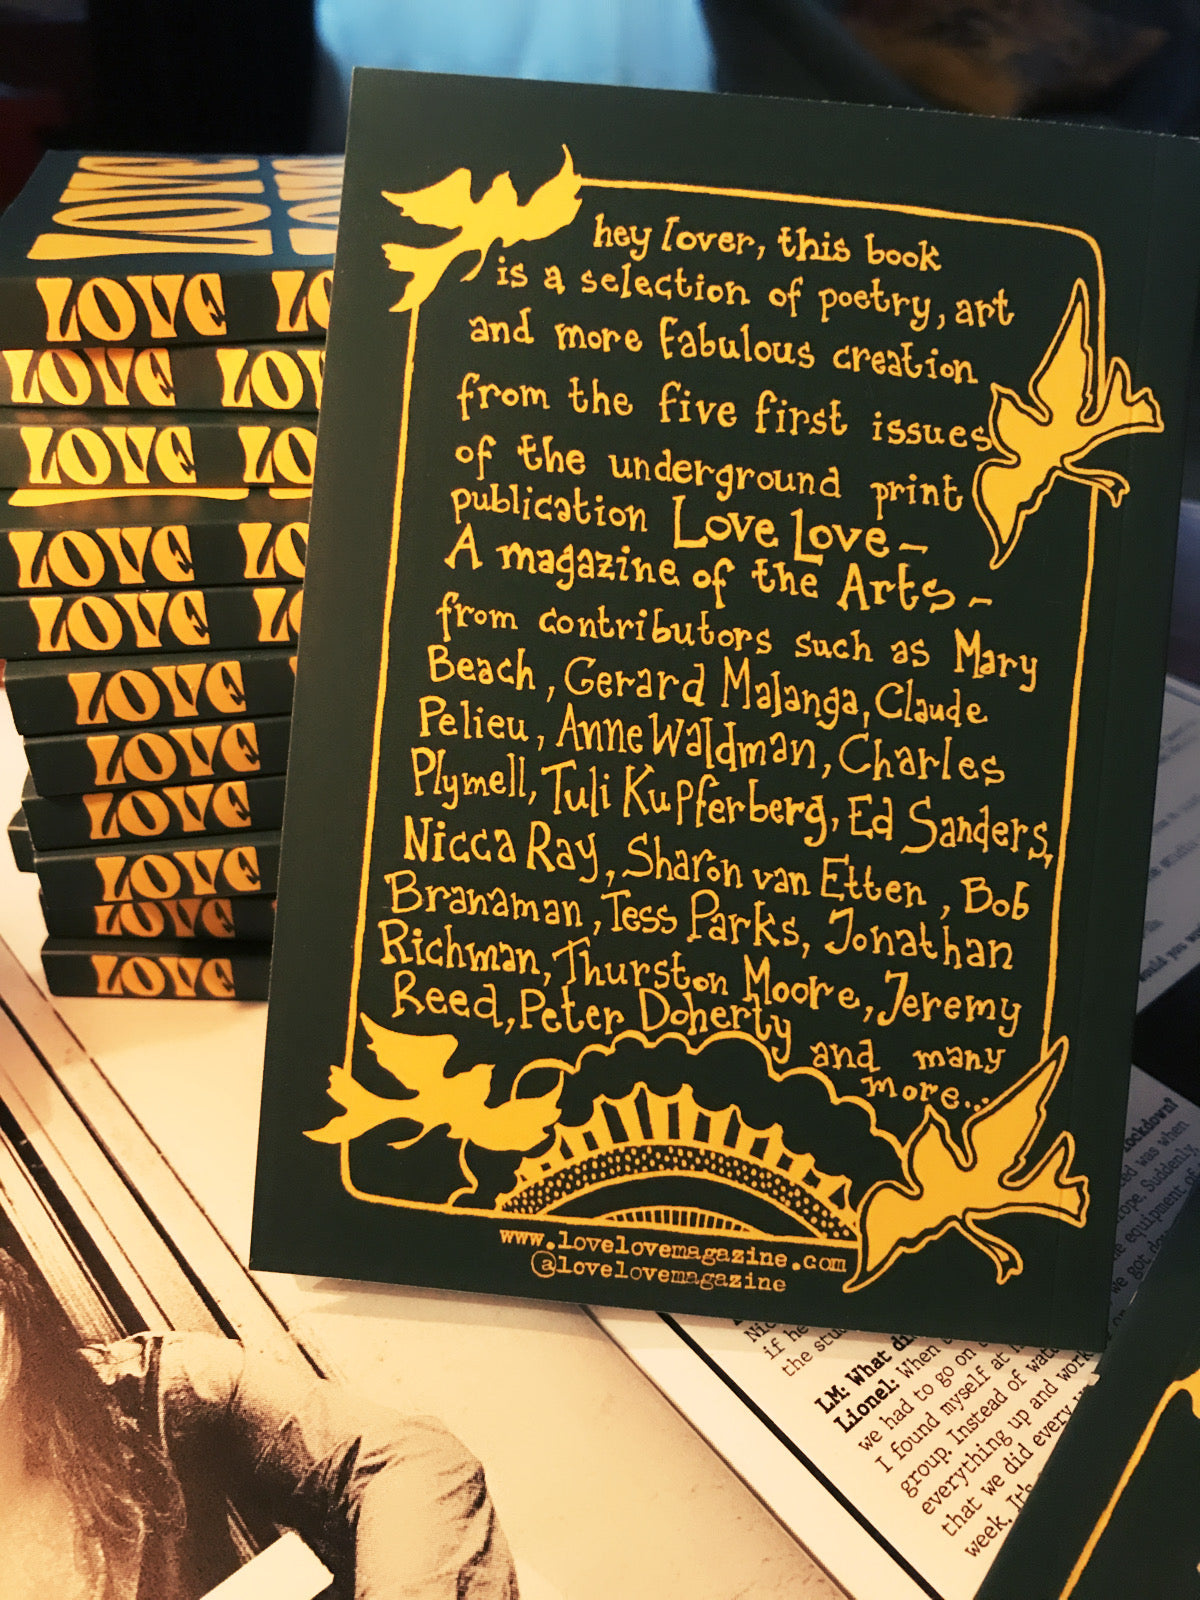 LOVE
LOVE
LOVE
LOVE
LOVE
LOVE
LOVE
LOVE
LOVE
LOVE
LOVE
LOVE
hey lover, this book
is a selection of poetry, art
and more fabulous creation
from the five first issues
of the underground print
publication Love Love –
A magazine of the Arts –
from contributors such as Mary
Beach, Gerard Malanga, Claude
Pelieu, Anne Waldman, Charles
Plymell, Tuli Kupferberg, Ed Sanders,
Nicca Ray, Sharon van Etten, Bob
Branaman, Tess Parks, Jonathan
Richman, Thurston Moore, Jeremy
Reed, Peter Doherty and many
more...
www.lovelovemagazine.com
@lovelovemagazine
if he
the
LM: What
Lionel: When
we had to go on
I found myself at
group. Instead of
everything up and work
that we did every
week. It's
was when
Suddenly,
equipment of
we got